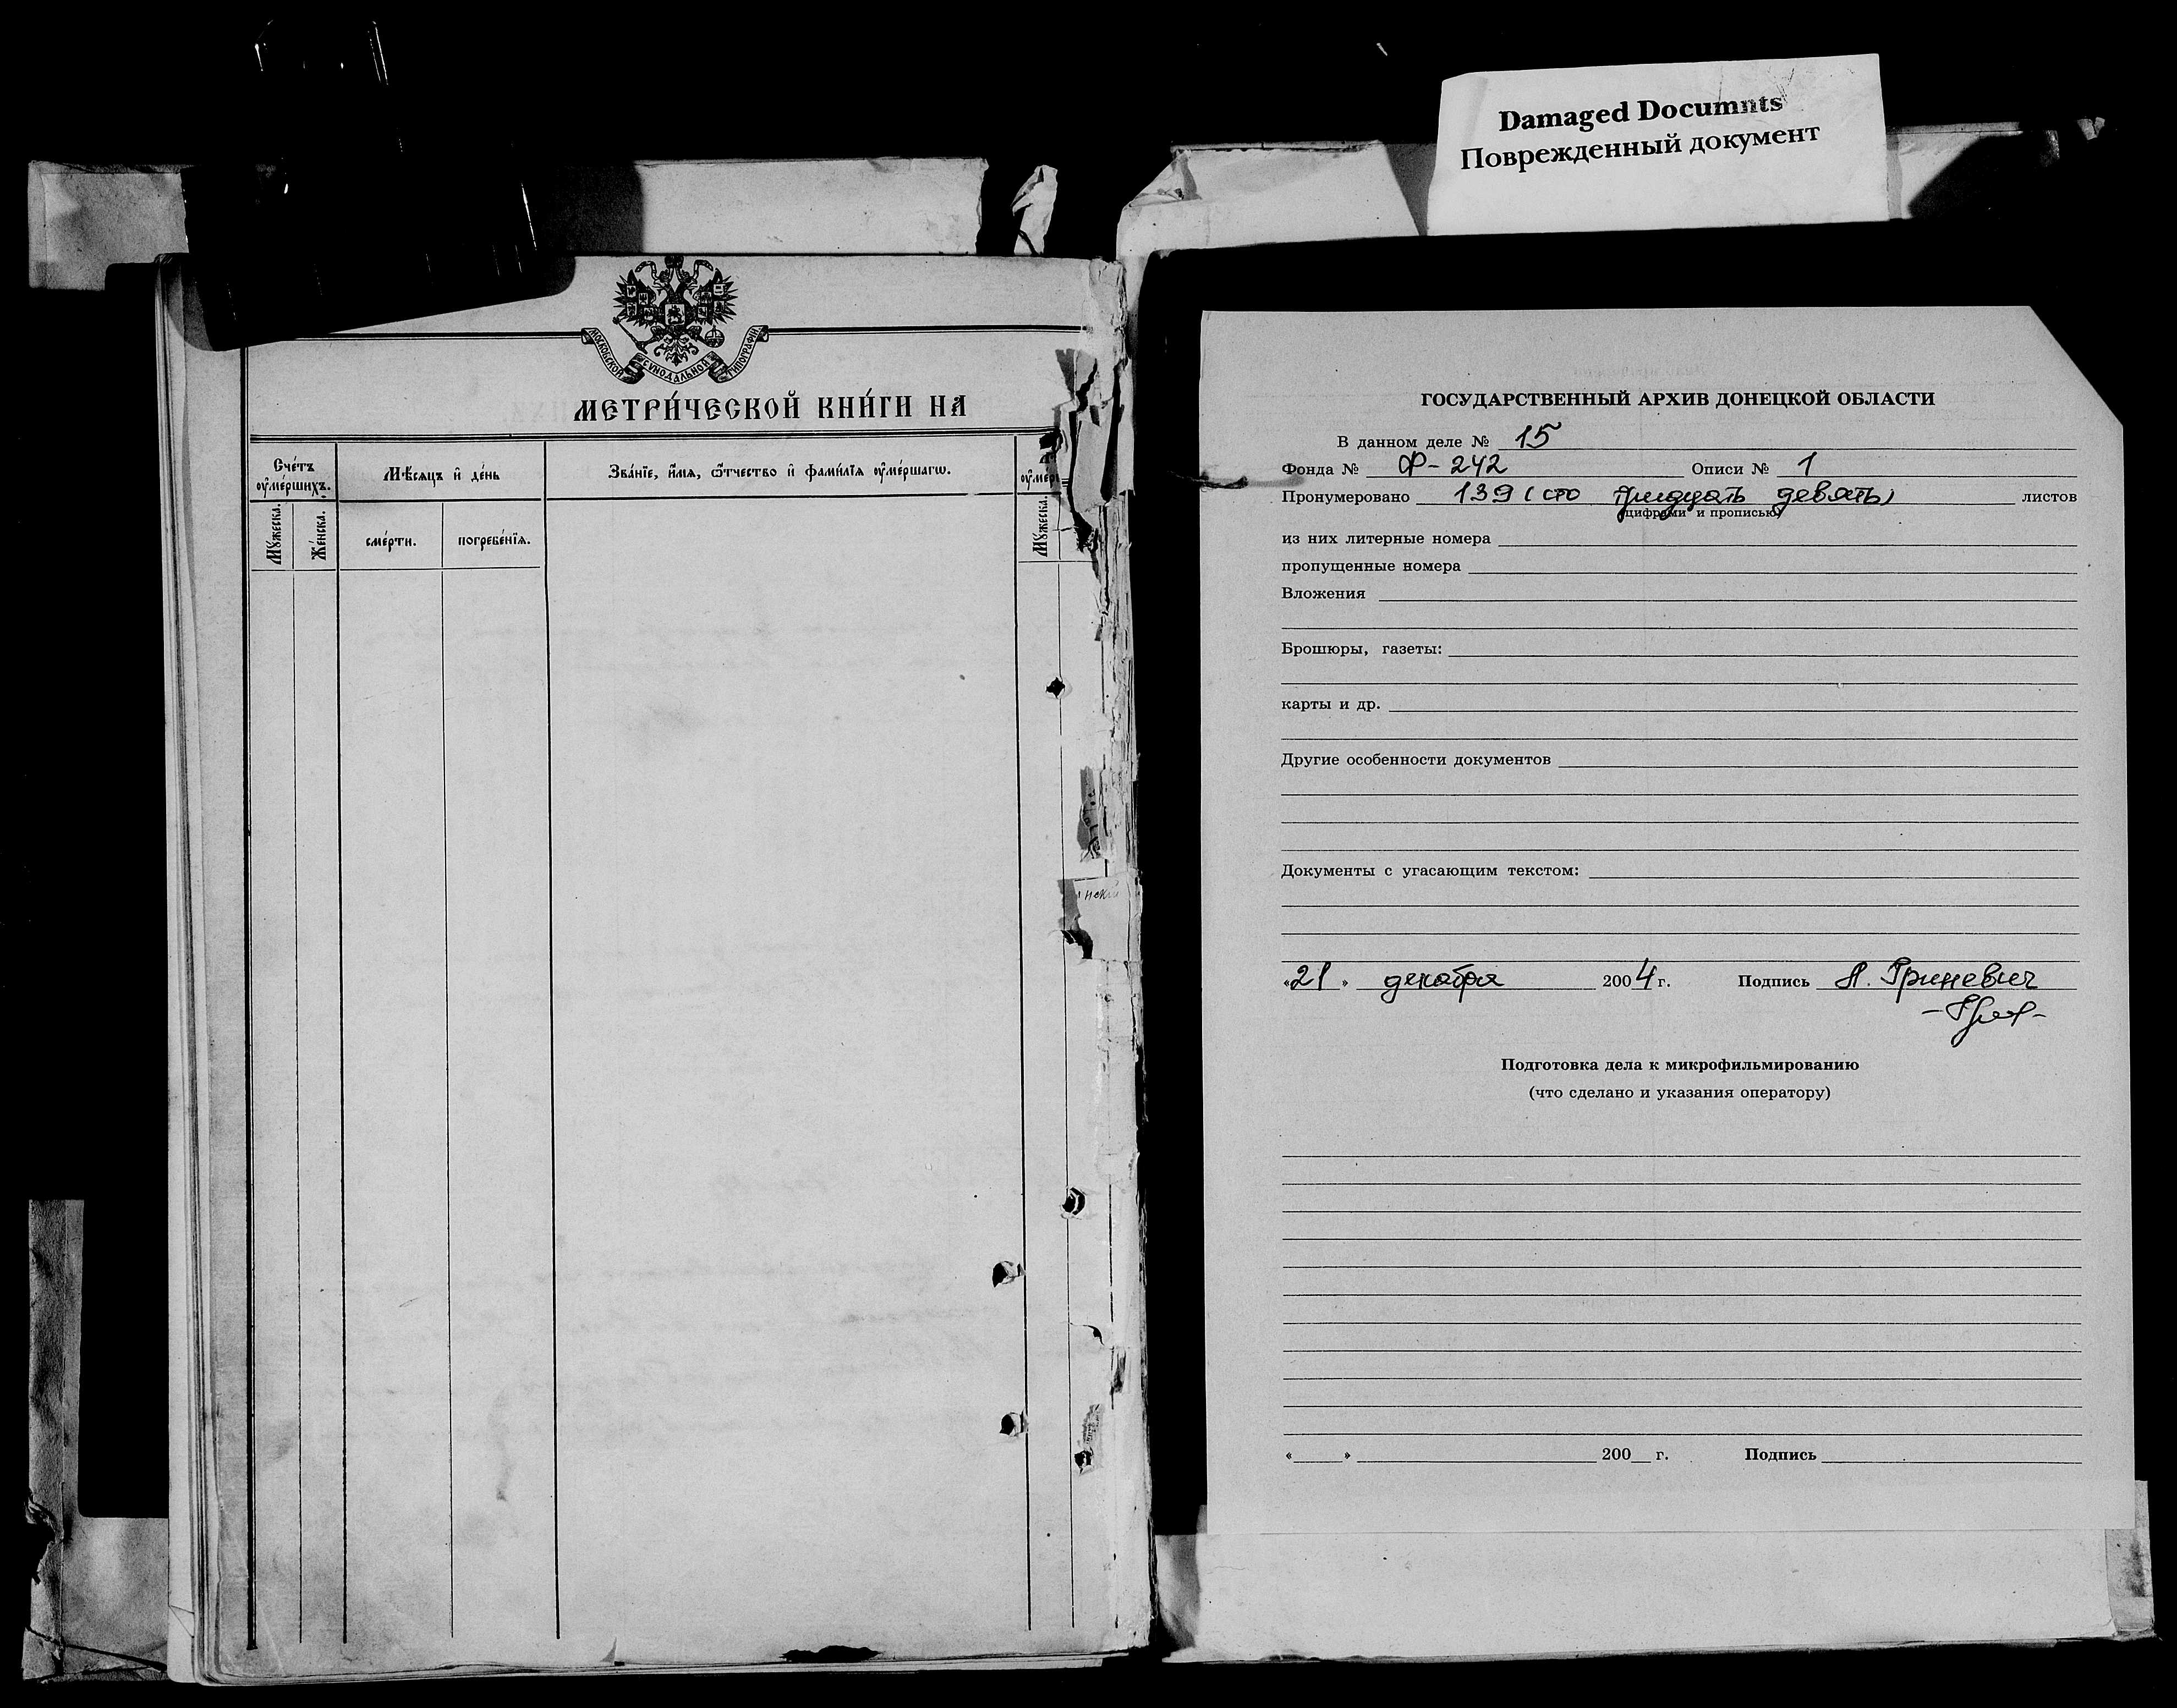 Damaged Documnts
Поврежденный документ
МОСКОВСКОЙ СУНОДАЛЬНОЙ ТИПОГРАФІИ
МЕТРИ́ЧЕСКОЙ КНИ́ГИ НА
Сче́тъ ᲂу҆ме́ршихъ.
Мѣ́сѧцъ и҆ де́нь
Зва́нїе, и҆́мѧ, ѻ҆́тчество и҆ фами́лїѧ ᲂу҆ме́ршагѡ.
ᲂу҆мер
Мꙋ́жеска.
Же́нска.
сме́рти.
погребе́нїѧ.
Мꙋ́жеска.
нский
ГОСУДАРСТВЕННЫЙ АРХИВ ДОНЕЦКОЙ ОБЛАСТИ
В данном деле № 15
Фонда № Ф-242 Описи № 1
Пронумеровано 139 (сто тридцать девять) листов
(цифрами и прописью)
из них литерные номера
пропущенные номера
Вложения
Брошюры, газеты:
карты и др.
Другие особенности документов
Документы с угасающим текстом:
«21» декабря 2004 г. Подпись Л. Гриневич
Подготовка дела к микрофильмированию
(что сделано и указания оператору)
« » 200 г. Подпись